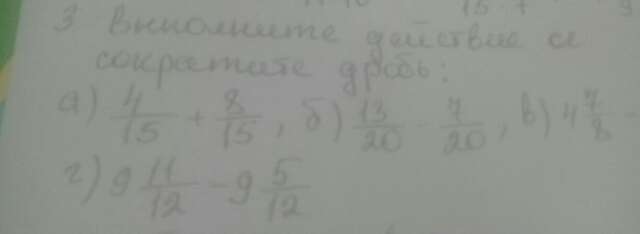 3 выполните действие и
сократите дробь:
а) 4/15 + 8/15, б) 13/20 - 7/20, в) 4 7/8 -
г) 9 11/12 - 9 5/12